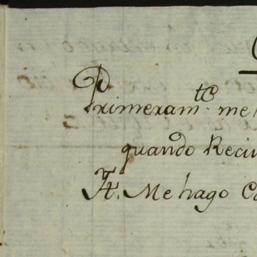 Primeram.te me
quando Recu
It. Me hago Ca